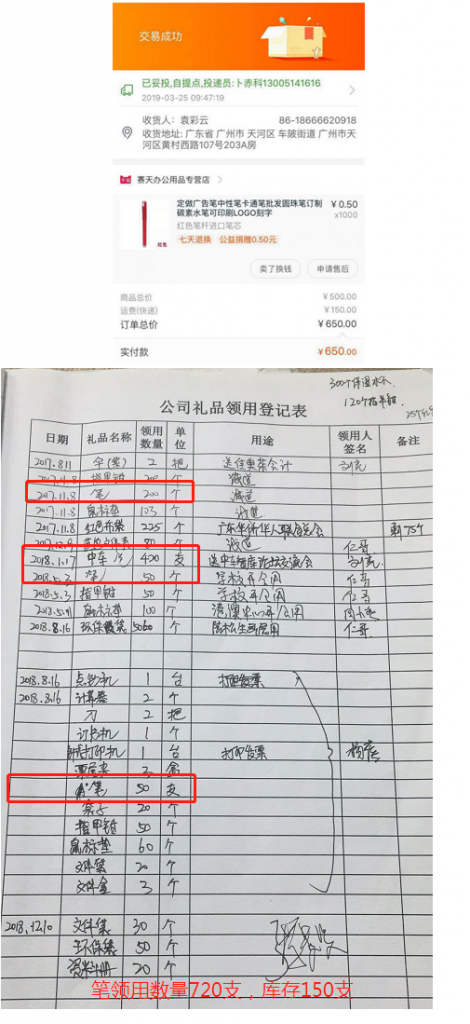 交易成功
已妥投,自提点,投递员:卜赤科13005141616
2019-03-25 09:47:19
收货人: 袁彩云 86-18666620918
收货地址: 广东省 广州市 天河区 车陂街道 广州市天
河区黄村西路107号203A房
赛天办公用品专营店
定做广告笔中性笔卡通笔批发圆珠笔订制 ¥0.50
碳素水笔可印刷LOGO刻字 x1000
红色笔杆进口笔芯
红色
七天退换 公益捐赠0.50元
卖了换钱 申请售后
商品总价 ¥500.00
运费(快递) ¥150.00
订单总价 ¥650.00
实付款 ¥650.00
300个保温水
120个指甲钳
公司礼品领用登记表
日期 礼品名称 领用数量 单位 用途 领用人签名 备注
2017.8.11 伞(紫) 2 把
2017.11.8 指甲钳 200 个
2017.11.8 笔 200 个
2017.11.8 鼠标垫 103 个
2017.11.8 红色布袋 225 个 广东华侨华人联合总会 剩75个
80 个 仁哥
2018.1.17 400 支
2018.5.3 笔 50 个 仁哥
2018.5.3 指甲钳 50 个 仁哥
鼠标垫 100 个
2018.8.16 环保袋 50 个 仁哥
2018.8.16 点钞机 1 台 打印发票
2018.8.16 计算器 2 个
刀 2 把
订书机 1 个
打印机 1 台 打印发票
票据夹 3 盒
笔 50 支
盒子 20 个
指甲钳 50 个
鼠标垫 60 个
文件袋 20 个
文件盒 3 个
2018.12.10 文件袋 30 个
环保袋 50 个
资料册 20 个
笔领用数量720支，库存150支